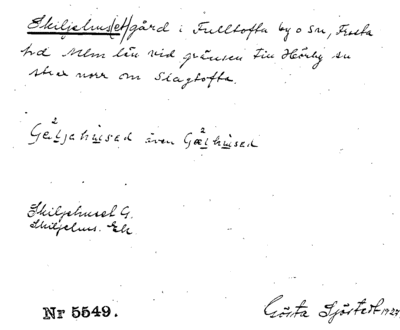 Skiljehus(et) gård i Fulltofta by o sn, Frosta
hd Mlm län vid gränsen till Hörby sn
strax norr om Slagtofta.
även
Skiljehuset G.
Skiljehus. Ek
Nr 5549.
Gösta Sjöstedt 1927